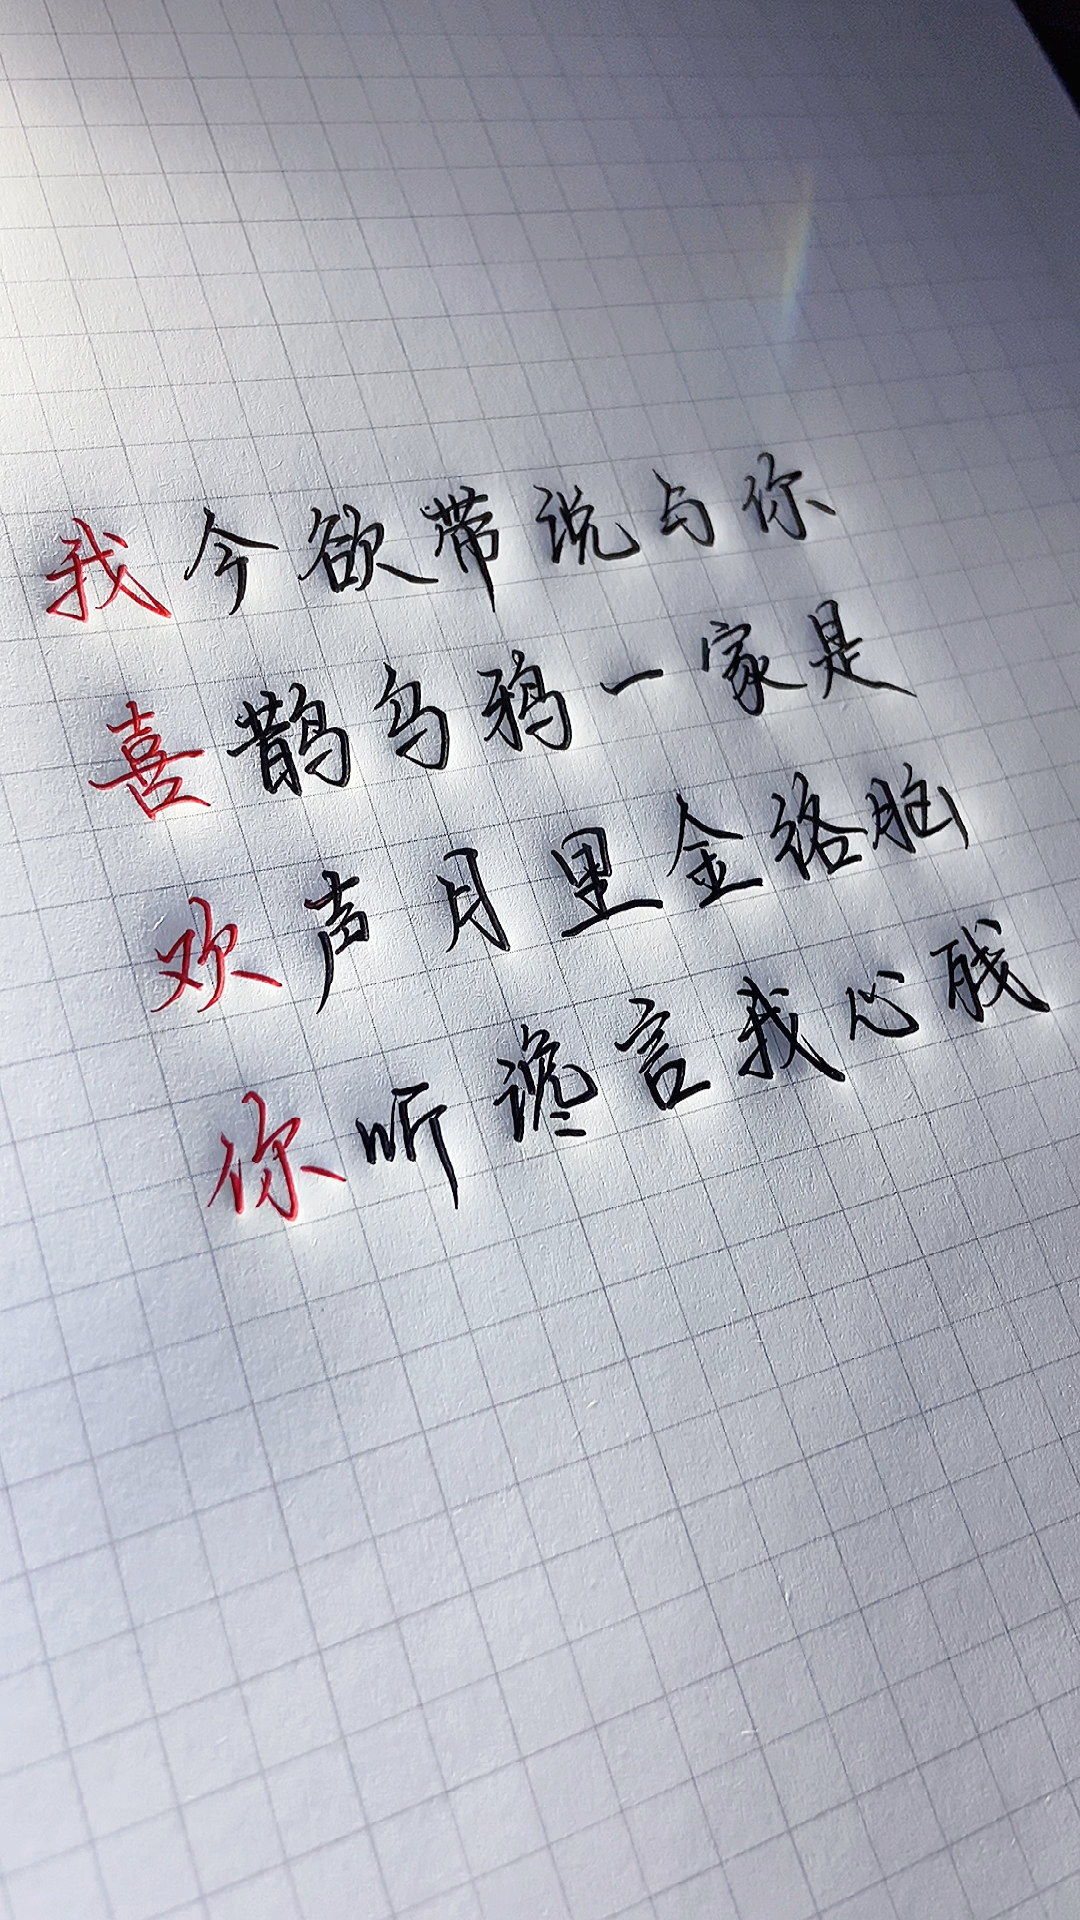 我今欲带说与你
喜鹊乌鸦一家是
欢声月里金络脑
你听谗言我心戝